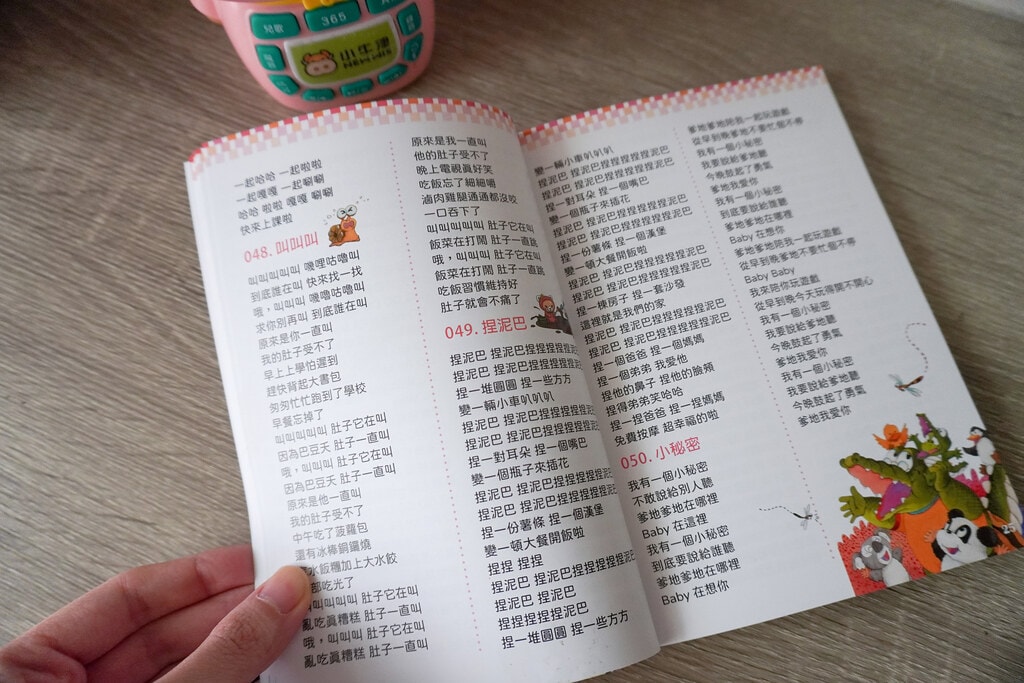 兒歌
365
小牛津
NEW WIS
一起哈哈 一起啦啦
一起嘎嘎 一起唰唰
哈哈 啦啦 嘎嘎 唰唰
快來上課啦
048. 叫叫叫
叫叫叫叫叫 嘰哩咕嚕叫
到底誰在叫 快來找一找
哦,叫叫叫 嘰嚕咕嚕叫
求你別再叫 到底誰在叫
原來是你一直叫
我的肚子受不了
早上上學怕遲到
趕快背起大書包
匆匆忙忙跑到了學校
早餐忘掉了
叫叫叫叫叫 肚子它在叫
因為巴豆夭 肚子一直叫
哦,叫叫叫 肚子它在叫
因為巴豆夭 肚子一直叫
原來是他一直叫
我的肚子受不了
中午吃了菠蘿包
還有冰棒銅鑼燒
水飯糰加上大水餃
部吃光了
叫叫叫叫 肚子它在叫
亂吃真糟糕 肚子一直叫
哦,叫叫叫 肚子它在叫
亂吃真糟糕 肚子一直叫
原來是我一直叫
他的肚子受不了
晚上電視真好笑
吃飯忘了細細嚼
滷肉雞腿通通都沒咬
一口吞下了
叫叫叫叫叫 肚子它在叫
飯菜在打鬧 肚子一直跳
哦,叫叫叫 肚子它在叫
飯菜在打鬧 肚子一直跳
吃飯習慣維持好
肚子就會不痛了
049. 捏泥巴
捏泥巴 捏泥巴捏捏捏捏捏泥
捏泥巴 捏泥巴捏捏捏捏捏泥
捏一堆圓圓 捏一些方方
變一輛小車叭叭叭
捏泥巴 捏泥巴捏捏捏捏捏
捏泥巴 捏泥巴捏捏捏捏捏
捏一對耳朵 捏一個嘴巴
變一個瓶子來插花
捏泥巴 捏泥巴捏捏捏捏捏泥
捏泥巴 捏泥巴捏捏捏捏捏泥
捏一份薯條 捏一個漢堡
變一頓大餐開飯啦
捏捏 捏捏
捏泥巴 捏泥巴捏捏捏捏捏泥巴
捏泥巴 捏泥巴
捏捏捏捏捏泥巴
捏一堆圓圓 捏一些方方
變一輛小車叭叭叭
捏泥巴 捏泥巴捏捏捏捏捏泥巴
捏泥巴 捏泥巴捏捏捏捏捏泥巴
捏一對耳朵 捏一個嘴巴
變一個瓶子來插花
捏泥巴 捏泥巴捏捏捏捏捏泥巴
捏泥巴 捏泥巴捏捏捏捏捏泥巴
捏一份薯條 捏一個漢堡
變一頓大餐開飯啦
捏泥巴 捏泥巴捏捏捏捏捏泥巴
捏泥巴 捏泥巴捏捏捏捏捏泥巴
捏一棟房子 捏一套沙發
這裡就是我們的家
捏泥巴 捏泥巴捏捏捏捏捏泥巴
捏泥巴 捏泥巴捏捏捏捏捏泥巴
捏一個爸爸 捏一個媽媽
捏一個弟弟 我愛他
捏他的鼻子 捏他的臉頰
捏得弟弟笑哈哈
捏一捏爸爸 捏一捏媽媽
免費按摩 超幸福的啦
050. 小秘密
我有一個小秘密
不敢說給別人聽
爹地爹地在哪裡
Baby 在這裡
我有一個小秘密
到底要說給誰聽
爹地爹地在哪裡
Baby 在想你
爹地爹地陪我一起玩遊戲
從早到晚爹地不要忙個不停
我有一個小秘密
我要說給爹地聽
今晚鼓起了勇氣
爹地我愛你
我有一個小秘密
到底要說給誰聽
爹地爹地在哪裡
Baby 在想你
爹地爹地陪我一起玩遊戲
從早到晚爹地不要忙個不停
Baby Baby
我來陪你玩遊戲
從早到晚今天玩得開不開心
我有一個小秘密
我要說給爹地聽
今晚鼓起了勇氣
爹地我愛你
我有一個小秘密
我要說給爹地聽
今晚鼓起了勇氣
爹地我愛你